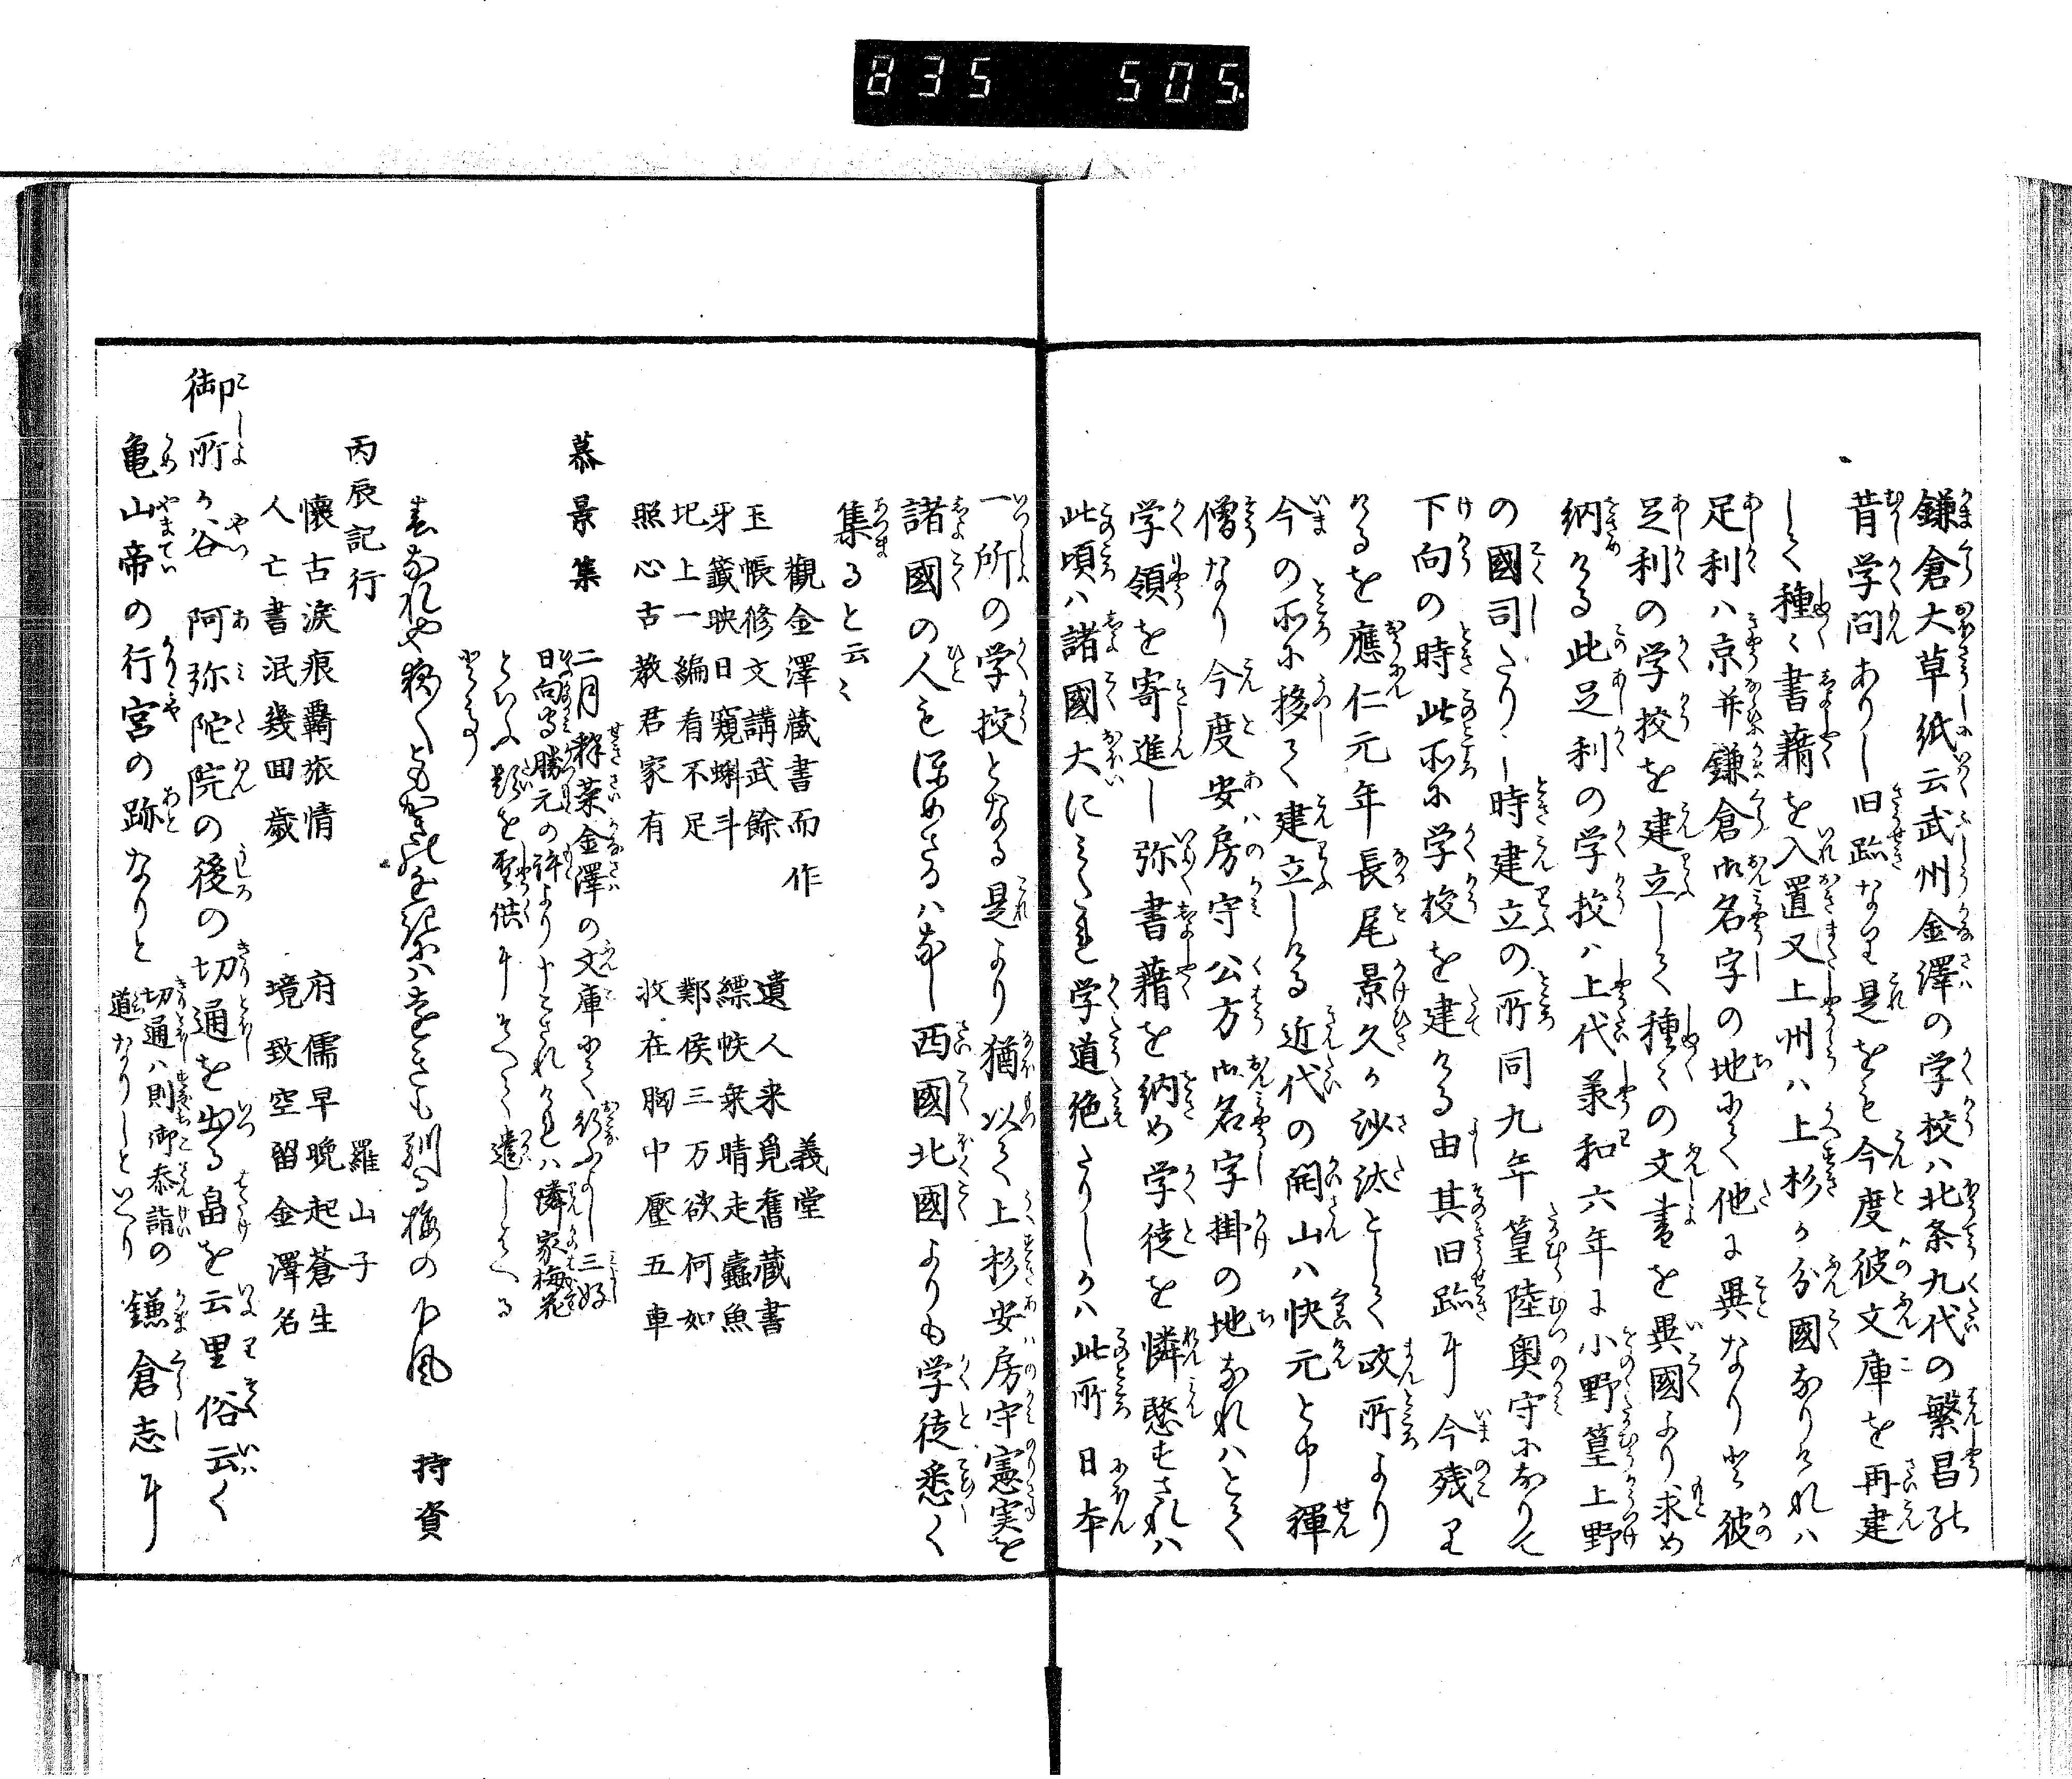 835 505
鎌倉大草紙云武州金澤の学校ハ北条九代の繁昌の
昔学問ありし旧跡なり是をも今度彼文庫を再建
して種々書籍を入置又上州ハ上杉か分國なりけれハ
足利ハ京并鎌倉御名字の地にて他に異なりと彼
足利の学校を建立して種々の文書を異國より求め
納ける此足利の学校ハ上代承和六年に小野篁上野
の國司たりし時建立の所同九年篁陸奥守になりて
下向の時此所に学校を建ける由其旧跡于今残り
けるを應仁元年長尾景久か沙汰として政所より
今の所に移して建立しける近代の開山ハ快元と申禅
僧なり今度安房守公方御名字掛の地なれハとて
学領を寄進し弥書籍を納め学徒を憐愍すされハ
此頃ハ諸國大にみたれ学道絶たりしかハ此所日本
一所の学校となる是より猶以て上杉安房守憲実を
諸國の人もほめさるハなし西國北國よりも学徒悉く
集ると云々
觀金澤蔵書而作 義堂
玉帳修文講武餘 遺人来覓舊蔵書
牙籤映日窺蝌斗 縹帙乗晴走蠹魚
圯上一編看不足 鄴侯三万欲何如
照心古教君家有 收在胸中壓五車
慕景集 二月釋菜金澤の文庫にて行ふよし三好
日向守勝元の許より申こされけれハ隣家梅花
といふ題を聖供に そへて遣しける
とき
春なれや 梅の下風 持資
丙辰記行 羅山子
懐古涙痕羇旅情 府儒早晩起蒼生
人亡書泯幾回歳 境致空留金澤名
御所か谷 阿弥陀院の後の切通を出る畠を云里俗云く
亀山帝の行宮の跡なりと 切通ハ則御参詣の道なりしといへり 鎌倉志に